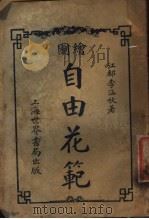 繪圖
江都李涵秋著
自由花範
上海世界書局出版